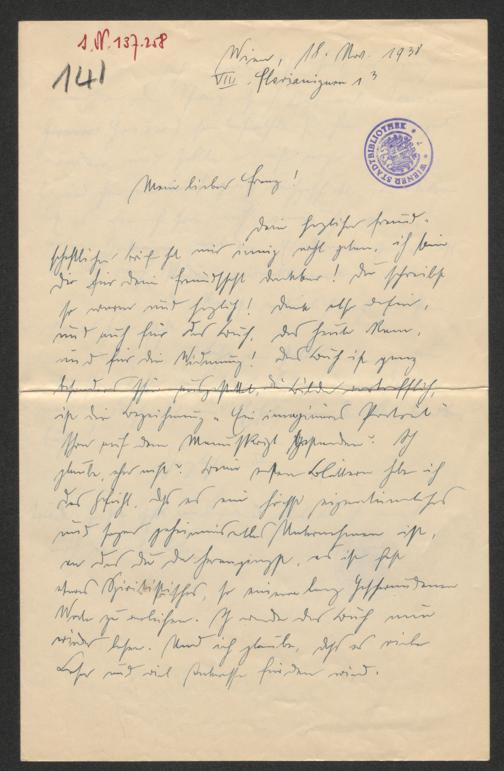 I. N. 137.258
141
Wien, 18. Nov. 1938
VIII. Florianigasse 1
WIENER STADTBIBLIOTHEK
Mein lieber Franz!
Dein herzlicher freund-
schaftlicher Brief hat mir innig wohl getan, ich bin
Dir für Deine Freundschaft dankbar! Du schreibst
so warm und herzlich! Dank also dafür,
und auch für das Buch, das heute kam,
und für die Widmung! Das Buch ist ganz
besonders schön ausgestattet, die Bilder vortrefflich,
ist die Bezeichnung „Ein imaginäres Porträt"
schon auf dem Manuskript gestanden? Ich
glaube, eher nicht? Beim ersten Blättern habe ich
das Gefühl, daß es ein höchst eigentümliches
und sogar geheimnisvolles Unternehmen ist,
an das Du da herangingst, es ist fast
etwas Spiritistisches, so einem lang
Worte zu verleihen. Ich werde das Buch nun
wieder lesen. Und ich glaube, daß es viele
Leser und viel Interesse finden wird.